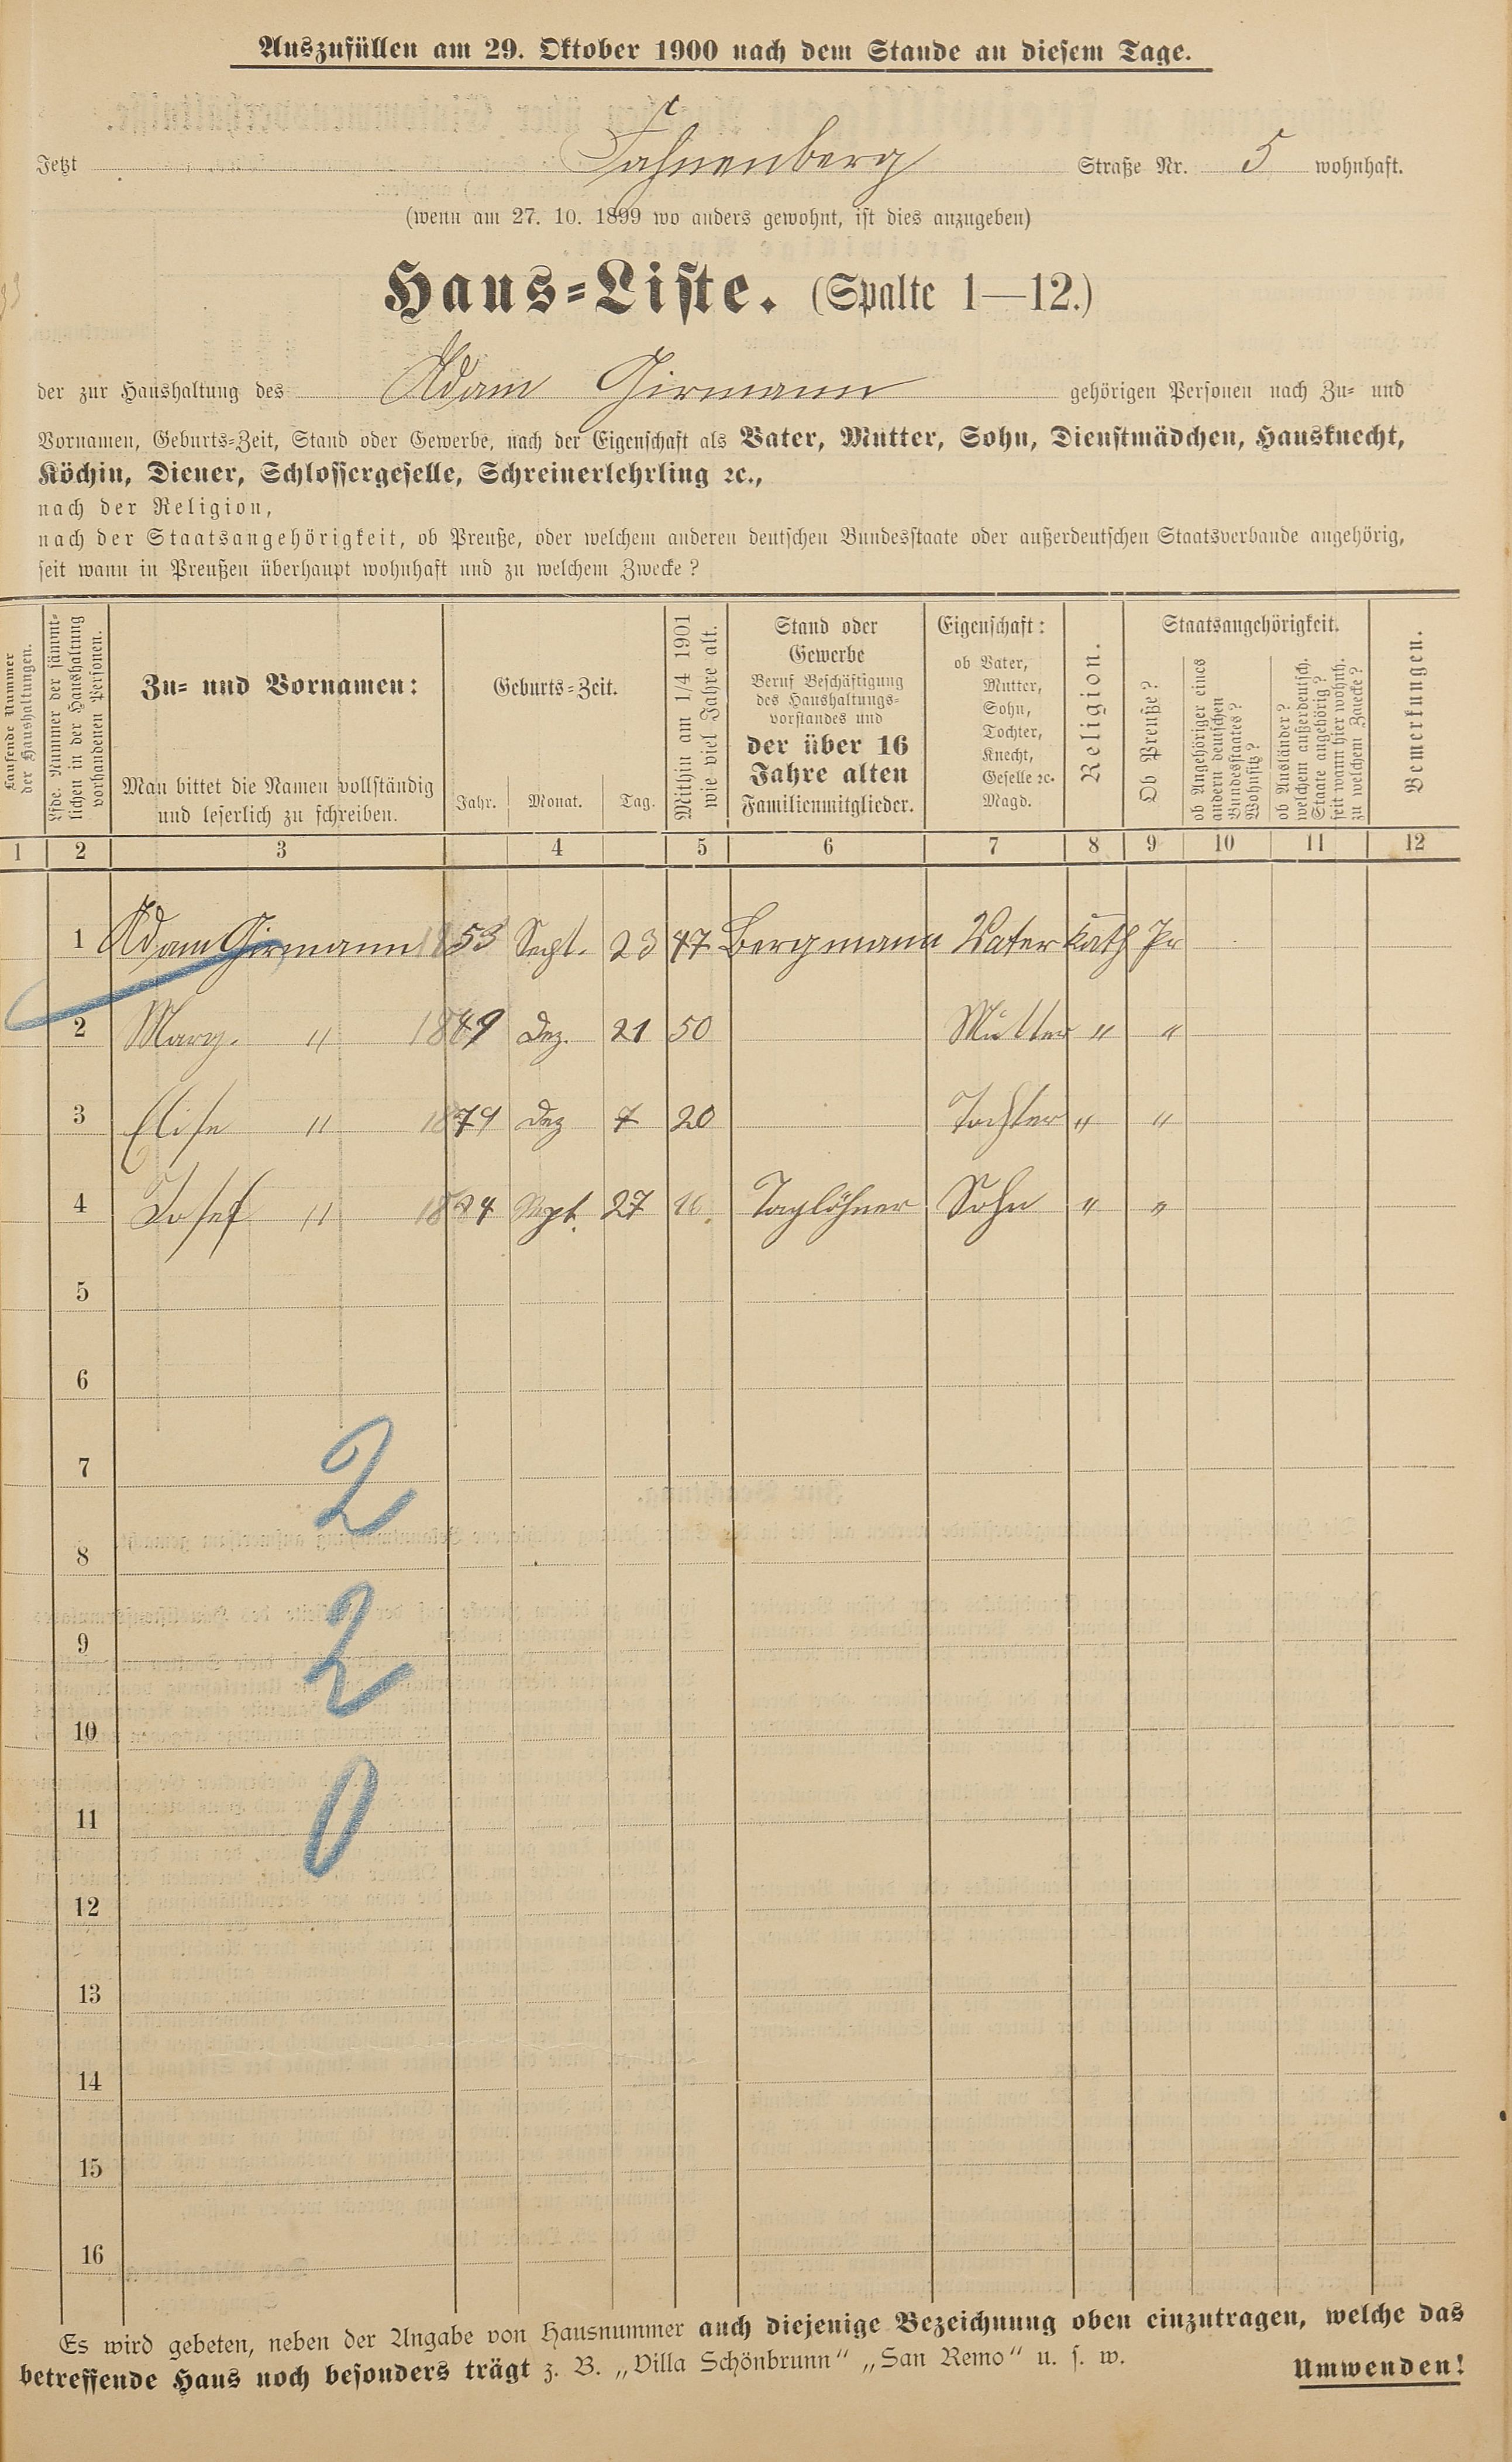 Auszufüllen am 29. Oktober 1900 nach dem Stande an diesem Tage.
Jetzt Fahnenberg Straße Nr. 5 wohnhaft.
(wenn am 27. 10. 1899 wo anders gewohnt, ist dies anzugeben)
Haus-Liste. (Spalte 1—12.)
der zur Haushaltung des Adam Girmann gehörigen Personen nach Zu- und
Vornamen, Geburts-Zeit, Stand oder Gewerbe, nach der Eigenschaft als Vater, Mutter, Sohn, Dienstmädchen, Hausknecht,
Köchin, Diener, Schlossergeselle, Schreinerlehrling ꝛc.,
nach der Religion,
nach der Staatsangehörigkeit, ob Preuße, oder welchem anderen deutschen Bundesstaate oder außerdeutschen Staatsverbande angehörig,
seit wann in Preußen überhaupt wohnhaft und zu welchem Zwecke?
Laufende Nummer
der Haushaltungen.
Lfde. Nummer der sämmt-
lichen in der Haushaltung
vorhandenen Personen.
Zu- und Vornamen:
Man bittet die Namen vollständig
und leserlich zu schreiben.
Geburts-Zeit.
Jahr. Monat. Tag.
Mithin am 1/4 1901
wie viel Jahre alt.
Stand oder
Gewerbe
Beruf Beschäftigung
des Haushaltungs-
vorstandes und
der über 16
Jahre alten
Familienmitglieder.
Eigenschaft:
ob Vater,
Mutter,
Sohn,
Tochter,
Knecht,
Geselle ꝛc.
Magd.
Religion.
Staatsangehörigkeit.
Ob Preuße?
ob Angehöriger eines
andern deutschen
Bundesstaates?
Wohnsitz?
ob Ausländer?
welchem außerdeutsch.
Staate angehörig?
seit wann hier wohnh.
zu welchem Zwecke?
Bemerkungen.
1 2 3 4 5 6 7 8 9 10 11 12
1 Adam Girmann 1853 Sept. 23 47 Bergmann Vater kath Pr
2 Marg. " 1849 Dez. 21 50 Mutter " "
3 Elise " 1879 Dez 7 20 Tochter " "
4 Josef " 1884 Sept. 27 16 Taglöhner Sohn " "
5
6
7
2
8
9
2
10
11
0
12
13
14
15
16
Es wird gebeten, neben der Angabe von Hausnummer auch diejenige Bezeichnung oben einzutragen, welche das
betreffende Haus noch besonders trägt z. B. „Villa Schönbrunn" „San Remo" u. s. w.
Umwenden!